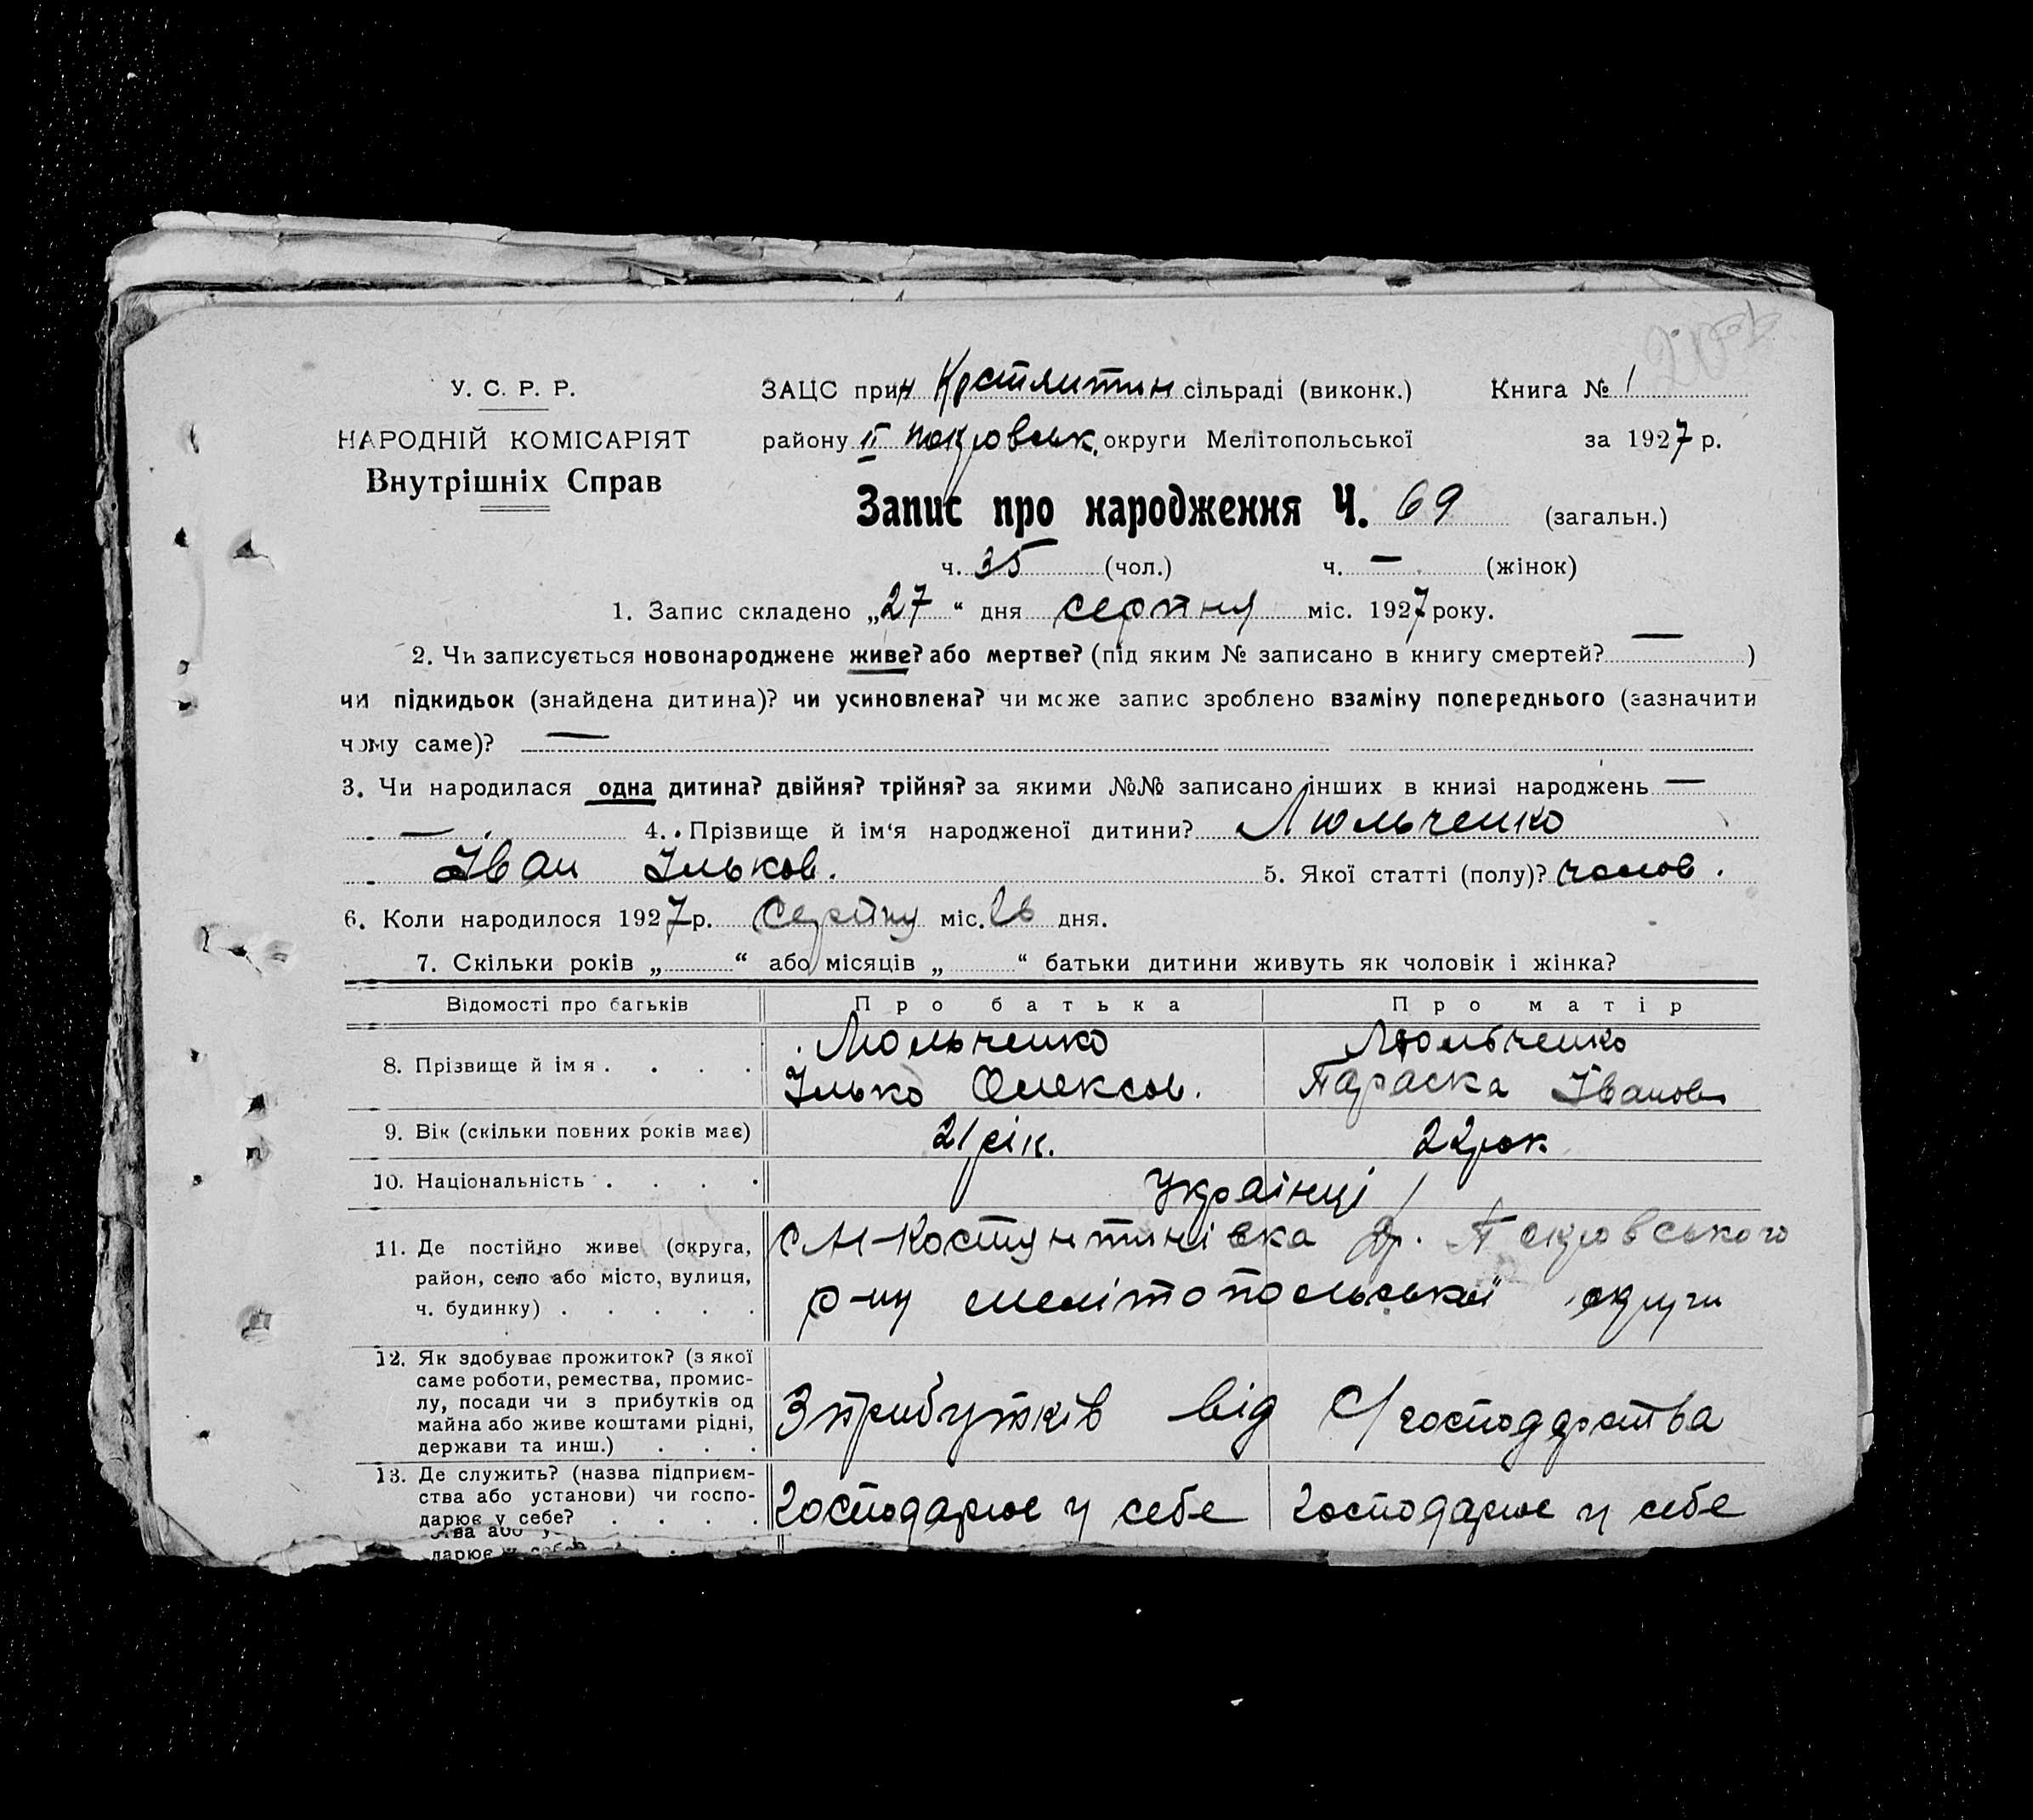 У. С. Р. Р.
НАРОДНІЙ КОМІСАРІЯТ
Внутрішніх Справ
ЗАЦС при Н Костянтин сільраді (виконк.) Книга № 1
району ІІ Покровськ. округи Мелітопольської за 1927 р.
Запис про народження Ч. 69 (загальн.)
ч. 35 (чол.) ч. — (жінок)
1. Запис складено „27“ дня серпня міс. 1927 року.
2. Чи записується новонароджене живе? або мертве? (під яким № записано в книгу смертей? — )
чи підкидьок (знайдена дитина)? чи усиновлена? чи може запис зроблено взаміну попереднього (зазначити
чому саме)? —
3. Чи народилася одна дитина? двійня? трійня? за якими №№ записано інших в книзі народжень —
— 4. Прізвище й ім‘я народженої дитини? Люльченко
Іван Ільков. 5. Якої статті (полу)? чолов.
6. Коли народилося 1927 р. Серпну міс. 26 дня.
7. Скільки років „ “ або місяців „ “ батьки дитини живуть як чоловік і жінка?
Відомості про батьків Про батька Про матір
8. Прізвище й імя . . . . Люльченко Ілько Олексов. Люльченко Параска Іванов
9. Вік (скільки повних років має) 21 рік. 22 рок
10. Національність . . . . Українці
11. Де постійно живе (округа, район, село або місто, вулиця, ч. будинку) . . . . . с Н-Костянтинівка Покровського
р-ну мелітопольської округи
12. Як здобуває прожиток? (з якої саме роботи, ремества, промислу, посади чи з прибутків од майна або живе коштами рідні, держави та инш.) . . . З прибутків від С/господарства
13. Де служить? (назва підприємства або установи) чи господарює у себе? . . . . господарює у себе господарює у себе